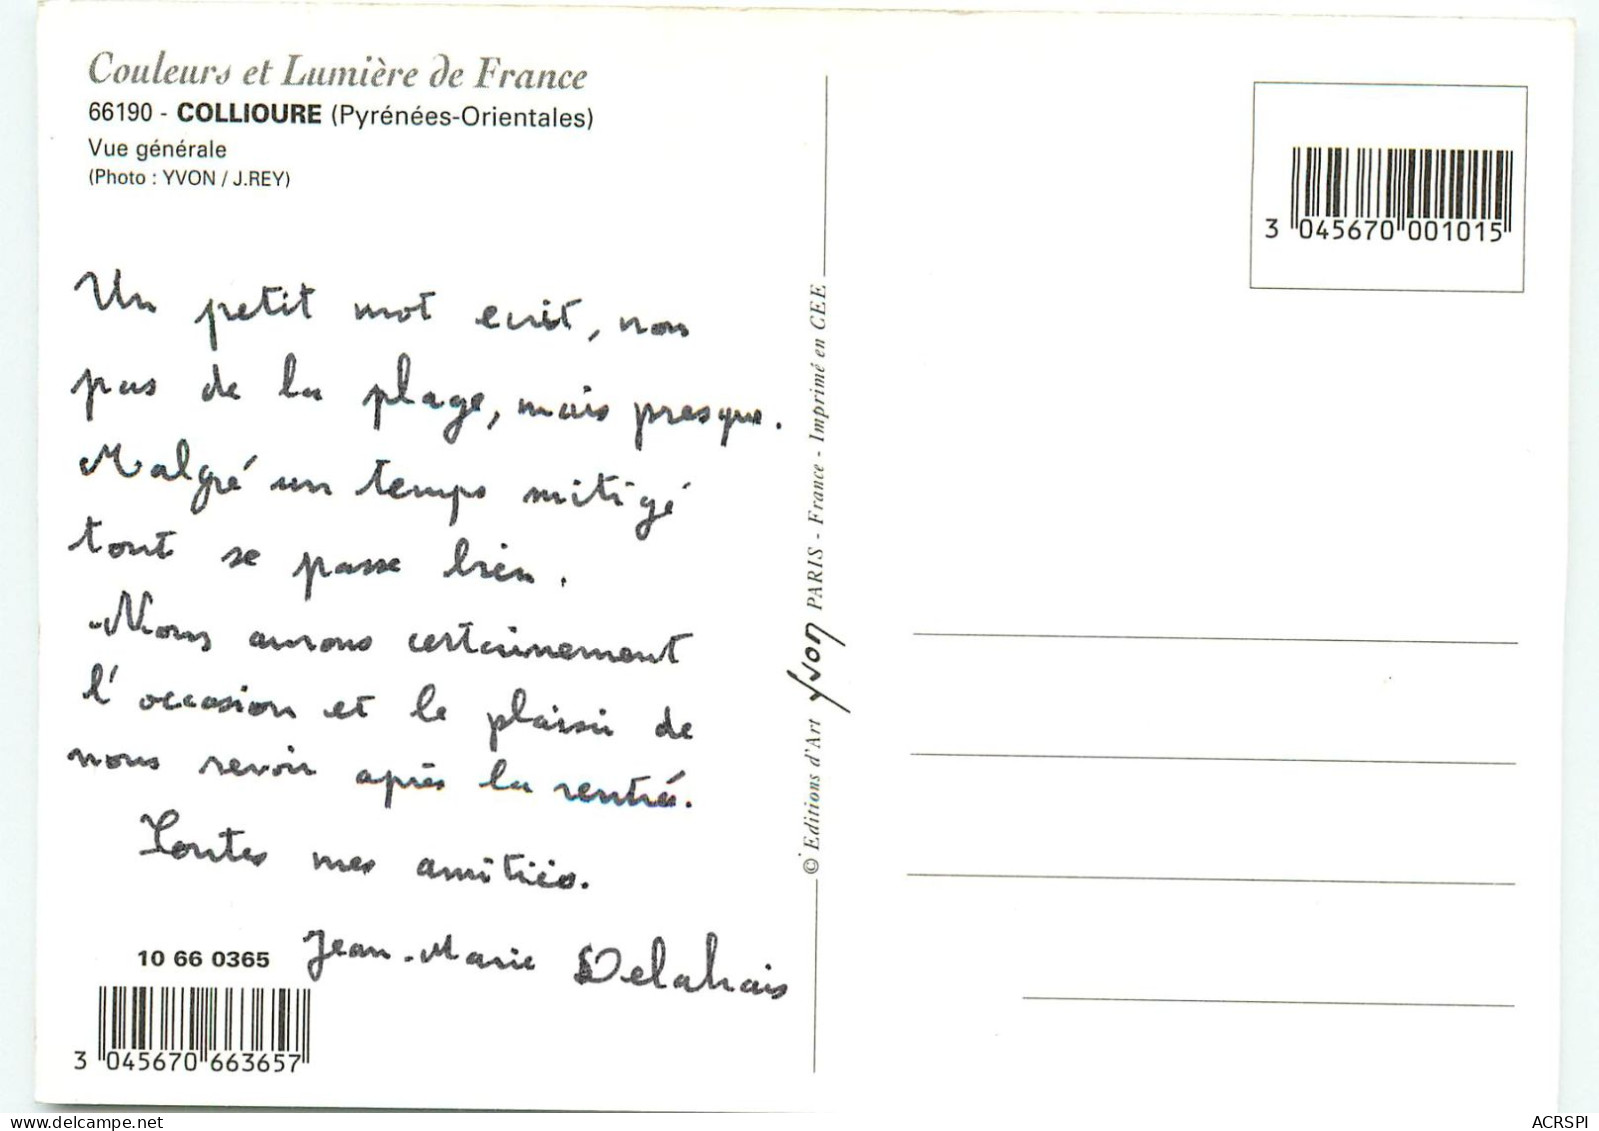 Couleurs et Lumière de France
66190 - COLLIOURE (Pyrénées-Orientales)
Vue générale
(Photo : YVON / J.REY)
Un petit mot ecrit, non
pas de la plage, mais presque.
Malgré un temps mitigé
tout se passe bien.
Nous aurons certainement
l'occasion et le plaisir de
nous revoir après la rentrée.
Toutes mes amitiés.
Jean-Marie Delahais
10 66 0365
3 045670 663657
© Editions d'Art yvon PARIS - France - Imprimé en CEE
3 045670 001015
ACRSPI